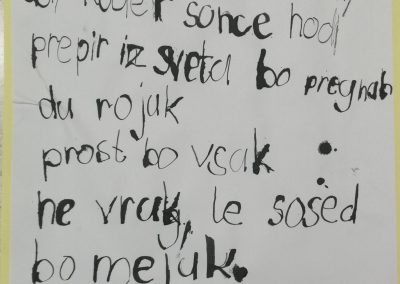 koder sonce hodi
prepir iz sveta bo pregnab
du rojuk
prost bo vsak
ne vrag, le sosed
bo mejuk.